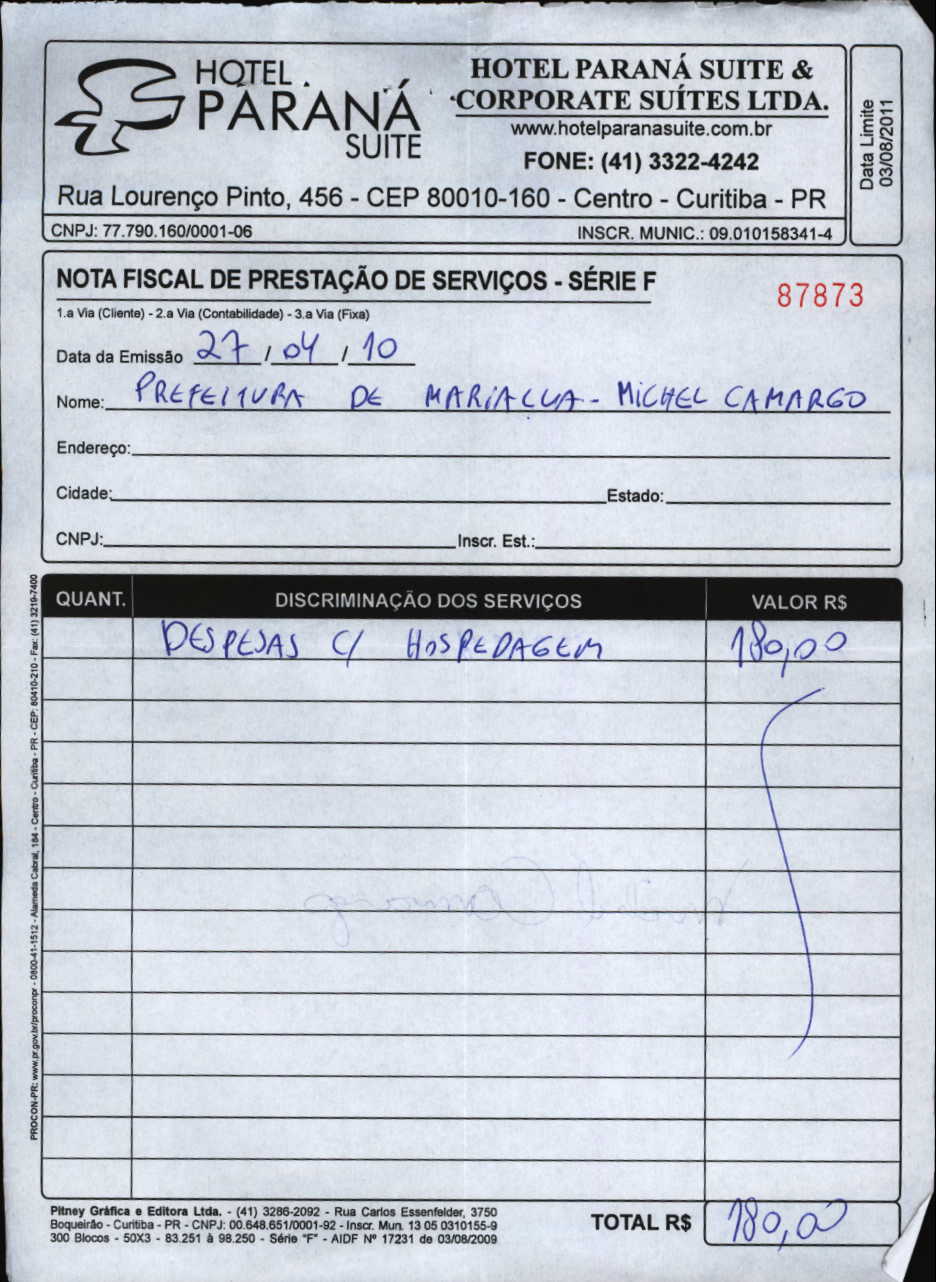 HOTEL
PARANÁ
SUITE
HOTEL PARANÁ SUITE &
CORPORATE SUÍTES LTDA.
www.hotelparanasuite.com.br
FONE: (41) 3322-4242
Rua Lourenço Pinto, 456 - CEP 80010-160 - Centro - Curitiba - PR
CNPJ: 77.790.160/0001-06 INSCR. MUNIC.: 09.010158341-4
Data Limite
03/08/2011
NOTA FISCAL DE PRESTAÇÃO DE SERVIÇOS - SÉRIE F
87873
1.a Via (Cliente) - 2.a Via (Contabilidade) - 3.a Via (Fixa)
Data da Emissão 27 / 04 / 10
Nome: PREFEITURA DE MARIALVA - MICHEL CAMARGO
Endereço:
Cidade: Estado:
CNPJ: Inscr. Est.:
QUANT. DISCRIMINAÇÃO DOS SERVIÇOS VALOR R$
DESPESAS C/ HOSPEDAGEM 180,00
PROCON-PR: www.pr.gov.br/proconpr - 0800-41-1512 - Alameda Cabral, 184 - Centro - Curitiba - PR - CEP: 80410-210 - Fax: (41) 3219-7400
Pitney Gráfica e Editora Ltda. - (41) 3286-2092 - Rua Carlos Essenfelder, 3750
Boqueirão - Curitiba - PR - CNPJ: 00.648.651/0001-92 - Inscr. Mun. 13 05 0310155-9
300 Blocos - 50X3 - 83.251 à 98.250 - Série "F" - AIDF Nº 17231 de 03/08/2009
TOTAL R$ 180,00